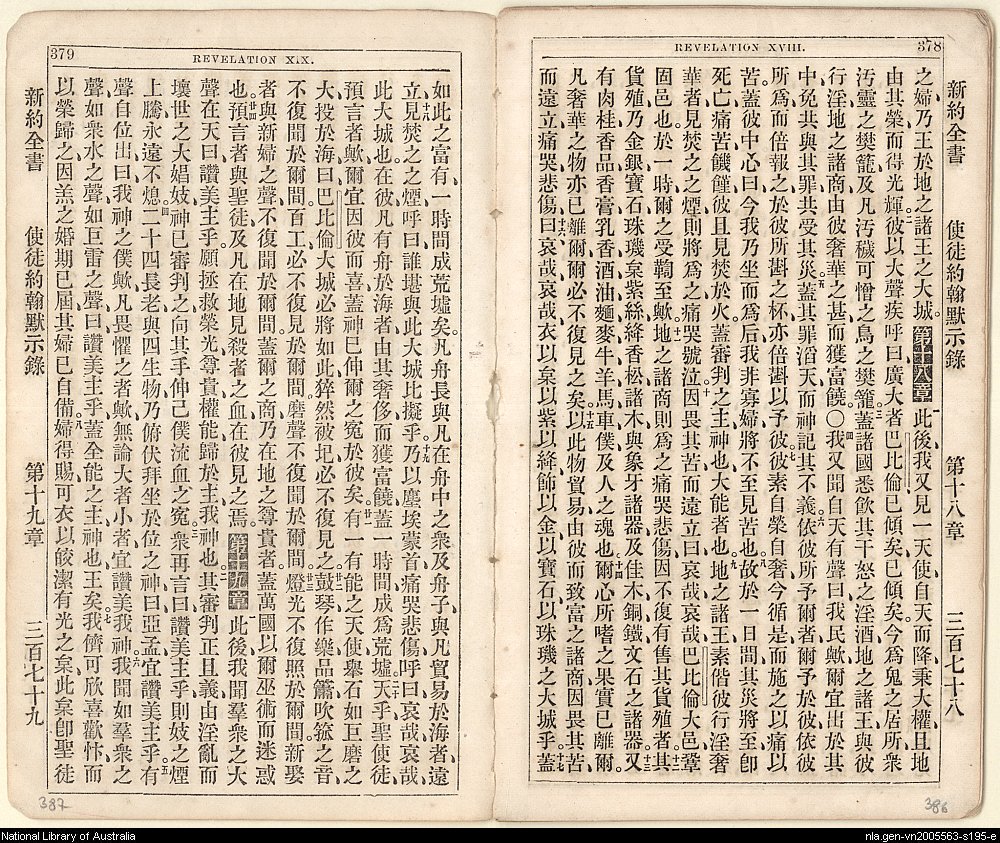 378
REVELATION XVIII.
新約全書 使徒約翰默示錄 第十八章 三百七十八
之婦乃王於地之諸王之大城。第十八章 此後我又見一天使自天而降秉大權且地
由其榮而得光輝彼以大聲疾呼曰廣大者巴比倫已傾矣已傾矣今爲鬼之居所衆
汚靈之樊籠及凡汚穢可憎之鳥之樊籠蓋諸國悉飲其干怒之淫酒地之諸王與彼
行淫地之諸商由彼奢華之甚而獲富饒〇我又聞自天有聲曰我民歟爾宜出於其
中免共與其罪共受其災蓋其罪滔天而神記其不義依彼所予爾者爾予於彼依彼
所爲而倍報之於彼所斟之杯亦倍斟以予彼素自榮自奢今循是而施之以痛以
苦蓋彼中心曰今我乃坐而爲后我非寡婦將不至見苦也故於一日間其災將至卽
死亡痛苦饑饉彼且見焚於火蓋審判之主神也大能者也地之諸王素偕彼行淫奢
華者見焚之之煙則將爲之痛哭號泣因畏其苦而遠立曰哀哉哀哉巴比倫大邑鞏
固邑也於一時爾之受鞫至歟地之諸商則爲之痛哭悲傷因不復有售其貨殖者其
貨殖乃金銀寶石珠璣枲紫絲絳香松諸木與象牙諸器及佳木銅鐵文石之諸器又
有肉桂香品香膏乳香酒油麵麥牛羊馬車僕及人之魂也爾心所嗜之果實已離爾
凡奢華之物亦已離爾爾必不復見之矣以此物貿易由彼而致富之諸商因畏其苦
而遠立痛哭悲傷曰哀哉哀哉衣以枲以紫以絳飾以金以寶石以珠璣之大城乎蓋
386
379
REVELATION XIX.
如此之富有一時間成荒墟矣凡舟長與凡在舟中之衆及舟子與凡貿易於海者遠
立見焚之之煙呼曰誰堪與此大城比擬乎乃以塵埃蒙首痛哭悲傷呼曰哀哉哀哉
此大城也在彼凡有舟於海者由其奢侈而獲富饒蓋一時間成爲荒墟天乎聖使徒
預言者歟爾宜因彼而喜蓋神已伸爾之寃於彼矣有一有能之天使舉石如巨磨之
大投於海曰巴比倫大城必將如此猝然被圮必不復見之鼓琴作樂品簫吹箛之音
不復聞於爾間百工必不復見於爾間磨聲不復聞於爾間燈光不復照於爾間新娶
者與新婦之聲不復聞於爾間蓋爾之商乃在地之尊貴者蓋萬國以爾巫術而迷惑
也預言者與聖徒及凡在地見殺者之血在彼見之焉。第十九章 此後我聞羣衆之大
聲在天曰讚美主乎願拯救榮光尊貴權能歸於主我神也其審判正且義由淫亂而
壞世之大娼妓神已審判之向其手伸己僕流血之寃衆再言曰讚美主乎則妓之煙
上騰永遠不熄二十四長老與四生物乃俯伏拜坐於位之神曰亞孟宜讚美主乎有
聲自位出曰我神之僕歟凡畏懼之者歟無論大者小者宜讚美我神我聞如羣衆之
聲如衆水之聲如巨雷之聲曰讚美主乎蓋全能之主神也王矣我儕可欣喜歡忭而
以榮歸之因羔之婚期已屆其婦已自備婦得賜可衣以皎潔有光之枲此枲卽聖徒
新約全書 使徒約翰默示錄 第十九章 三百七十九
387
National Library of Australia
nla.gen-vn2005563-s195-e